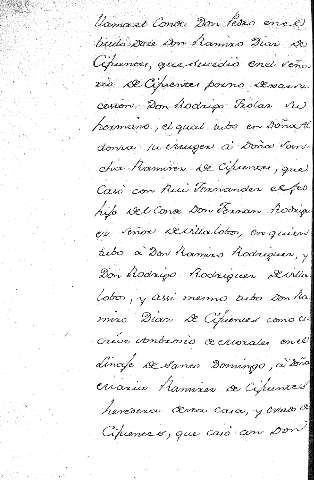 llama el Conde Don Pedro en el
titulo doze Don Ramiro Diaz de
Cifuentes, que sucedio en el Seño
rio de Cifuentes por no dexar su
cesion Don Rodrigo Frolaz su
hermano, el qual tubo en Doña Al
donza su muger à Doña San
cha Ramirez de Cifuentes, que
Casó con Rui Fernandez el feo
hijo del Conde Don Fernan Rodrig
ez Señor de Villalobos, en quien
tubo à Don Ramiro Rodriguez, y
Don Rodrigo Rodriguez de Villa
lobos, y assi mismo tubo Don Ra
miro Diaz de Cifuentes como es
crive Ambrosio de Morales en el
Linaje de Santo Domingo, à Doña
Maria Ramirez de Cifuentes
heredera de esta casa, y
Cifuentes, que casó con Don